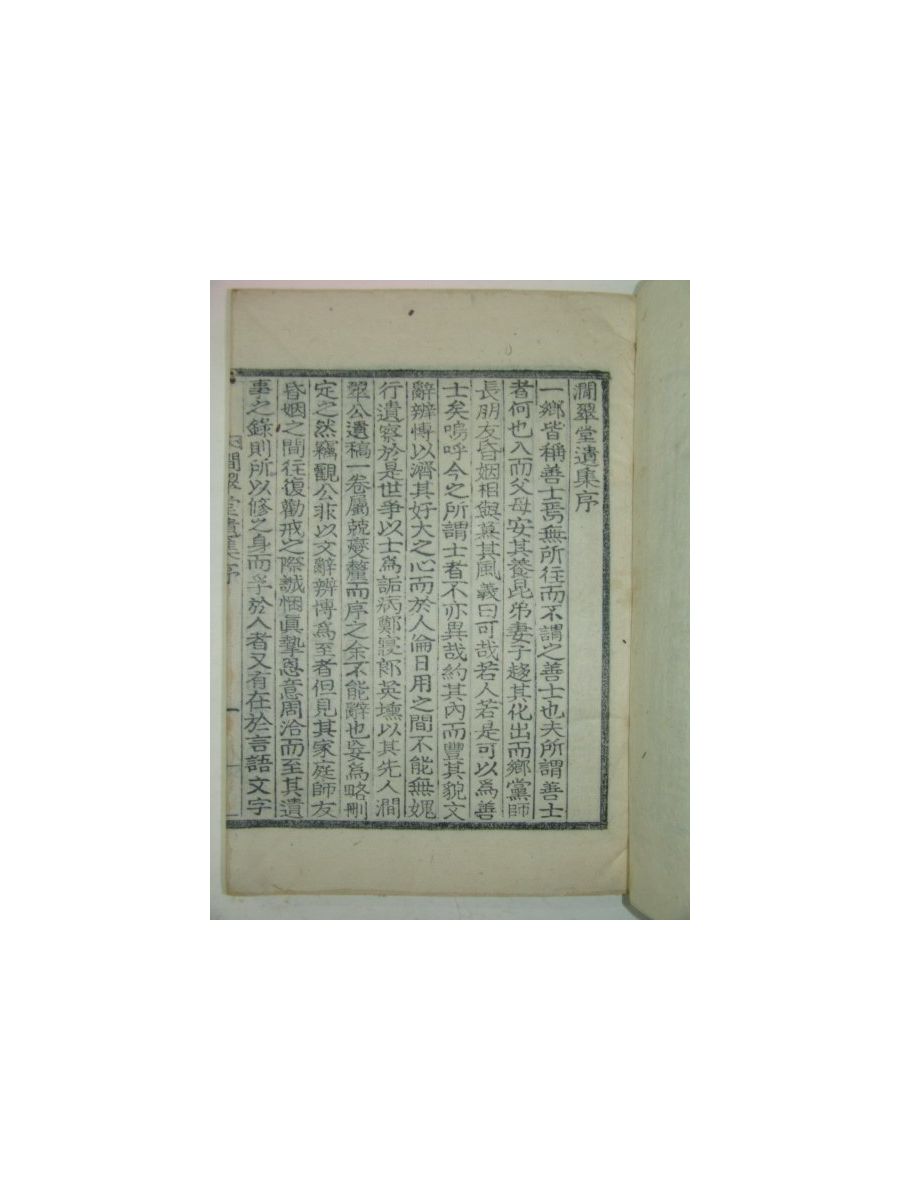 澗翠堂遺集序
一鄕皆稱善士焉無所往而不謂之善士也夫所謂善士
者何也入而父母安其養昆弟妻子趍其化出而鄕黨師
長朋友昏姻相與慕其風義曰可哉若人若是可以爲善
士矣嗚呼今之所謂士者不亦異哉約其內而豐其貌文
辭辨博以濟其好大之心而於人倫日用之間不能無媿
行遺察於是世爭以士爲詬病鄭寢郞英壎以其先人澗
翠公遺稿一卷屬兢燮釐而序之余不能辭也妥爲略刪
定之然竊觀公非以文辭辨博爲至者但見其家庭師友
昏姻之間往復勸戒之際誠悃眞摯恩意周洽而至其遺
事之錄則所以修之身而孚於人者又有在於言語文字
澗翠堂遺集序
一